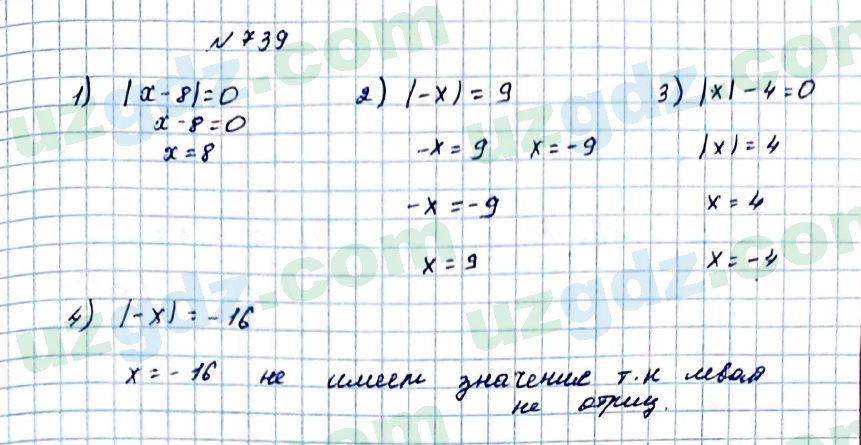 N 739
1) |x-8|=0
x-8=0
x=8
2) |-x|=9
-x=9 x=-9
-x=-9
x=9
3) |x|-4=0
|x|=4
x=4
x=-4
4) |-x|=-16
x=-16 не имеет значение т.к левая
не отриц.
uzgdz.com
uzgdz.com
uzgdz.com
uzgdz.com